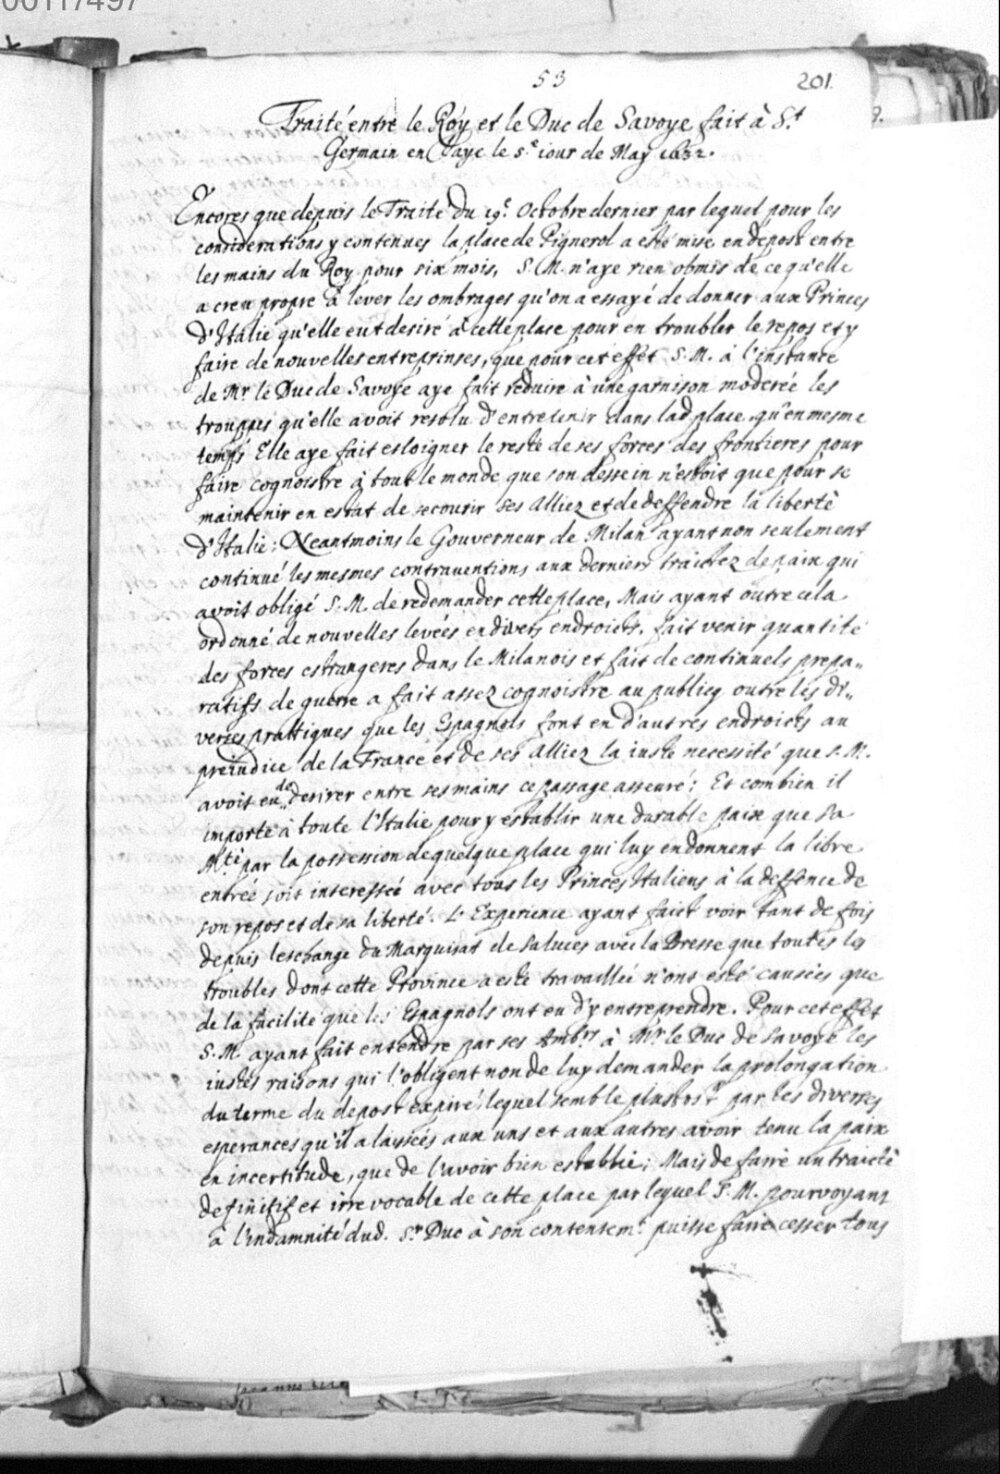 00117497
53
201.
Traité entre le Roy et le Duc de Savoye fait à S.t
Germain en Laye le 5.e iour de May 1632.
Encores que depuis le Traité du 19.e Octobre dernier par lequel pour les
considerations y contenues la place de Pignerol a esté mise en depost entre
les mains du Roy pour six mois, S. M. n'aye rien obmis de ce qu'elle
a creu propre à lever les ombrages qu'on a essayé de donner aux Princes
d'Italie qu'elle eut desiré à cette place pour en troubler le repos et y
faire de nouvelles entreprinses, que pour cet effet S. M. à l'instance
de Mr. le Duc de Savoye aye fait reduire à une garnison moderée les
trouppes qu'elle avoit resolu d'entretenir dans lad. place qu'en mesme
temps Elle aye fait esloigner le reste de ses forces des frontieres pour
faire cognoistre à tout le monde que son dessein n'estoit que pour se
maintenir en estat de secourir ses Alliez et de deffendre la liberté
d'Italie; Neantmoins le Gouverneur de Milan ayant non seulement
continué les mesmes contraventions aux derniers traictez de paix qui
avoit obligé S. M. de redemander cette place, Mais ayant outre cela
ordonné de nouvelles levées en divers endroicts, fait venir quantité
des forces estrangeres dans le Milanois et fait de continuels prepa„
ratifs de guerre a fait assez cognoistre au publicq outre les di„
verses prattiques que les Espagnols font en d'autres endroicts au
preiudice de la France et de ses Alliez la iuste necessité que S. M.
avoit eu de desirer entre ses mains ce passage asseuré; Et combien il
importe à toute l'Italie pour y establir une durable paix que sa
M.té par la possession de quelque place qui luy en donnent la libre
entrée soit interessée avec tous les Princes Italiens à la deffence de
son repos et de sa liberté. L'Experience ayant faict voir tant de fois
depuis leschange du Marquisat de Saluces avec la Bresse que toutes les
troubles dont cette Province a esté travaillée n'ont esté causées que
de la facilité que les Espagnols ont eu d'y entreprendre. Pour cet effet
S. M. ayant fait entendre par ses Amb.rs à Mr. le Duc de Savoye les
iustes raisons qui l'obligent non de luy demander la prolongation
du terme du depost expiré lequel semble plustost par les diverses
esperances qu'il a laissées aux uns et aux autres avoir tenu la paix
en incertitude, que de l'avoir bien establie; Mais de faire un traicté
definitif et irrevocable de cette place par lequel S. M. pourvoyant
à l'indamnité dud. S.r Duc à son contentem.t puisse faire cesser tous